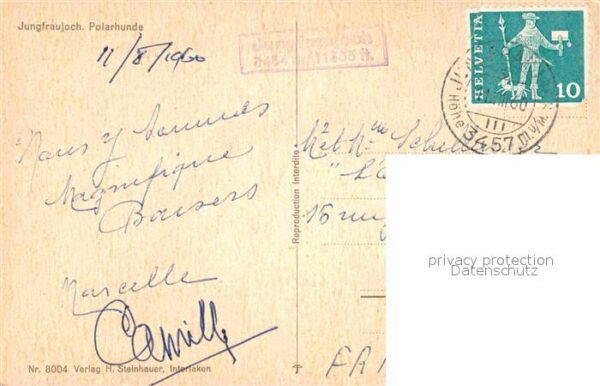 Jungfraujoch. Polarhunde
11/8/1960
3454 m/11333 ft.
HELVETIA
10
Höhe
3457 m ü/M.
Nous y sommes
Magnifique
Baisers
Marcelle
Camille
Reproduction Interdite
Mr et Mme
16 rue
FRAN
privacy protection
Datenschutz
Nr. 8004 Verlag H. Steinhauer, Interlaken